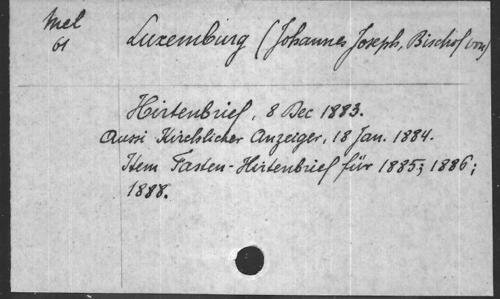 Mel
61
Luxemburg (Johannes Joseph, Bischof von)
Hirtenbrief, 8 Dec 1883.
Aussi Kirchlicher Anzeiger, 18 Jan. 1884.
Item Fasten-Hirtenbrief für 1885; 1886;
1888.